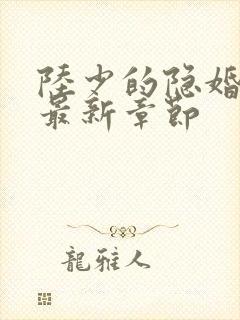 陸少的隐婚
最新章節
龍雅人